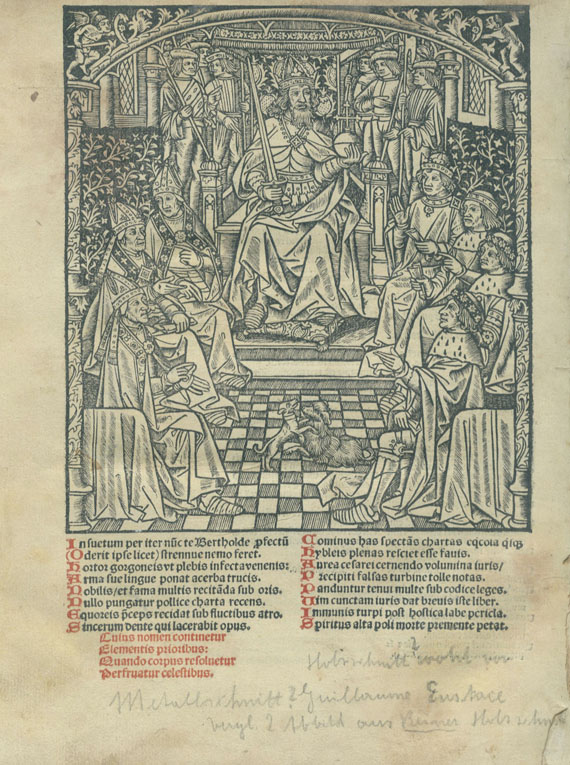 Insuetum per iter nūc te Bertholde ꝓfectū
Oderit ipse licet/strennue nemo feret.
Hortor gorgoneis vt plebis infecta venenis:
Arma sue lingue ponat acerba trucis.
Nobilis/et fama multis recitāda sub oris.
Nullo pungatur pollice charta recens.
Equoreis pn̄ceps recidat sub fluctibus atro.
Sincerum dente qui lacerabit opus.
Cuius nomen continetur
Elementis prioribus:
Quando corpus resoluetur
Perfruatur celestibus.
Cominus has spectās chartas
Hybleis plenas resciet esse fauis.
Aurea cesarei cernendo volumina iuris/
Precipiti falsas turbine tolle notas.
Panduntur tenui multe sub codice leges.
Vim cunctam iuris dat breuis iste liber.
Immunis turpi post postica labe pericla.
Spiritus alta poli morte premente petat.
Holzschnitt?
Metallschnitt? Guillaume Eustace
vergl. 2 Abbild aus